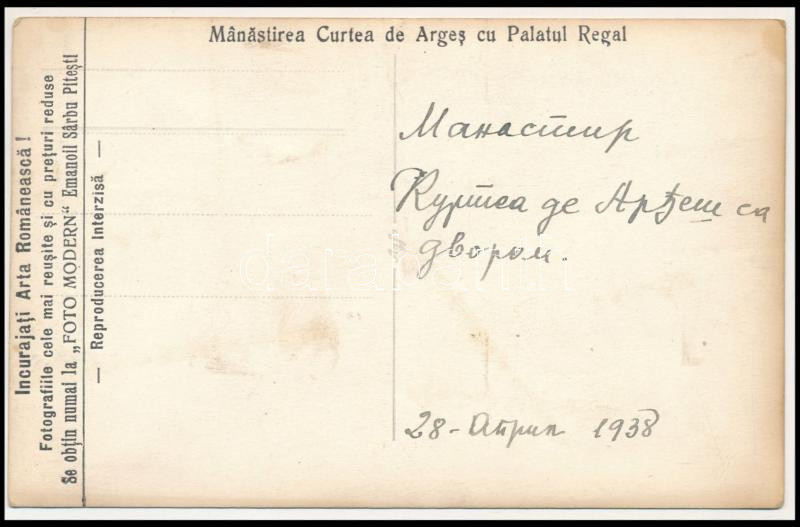 Mânăstirea Curtea de Argeş cu Palatul Regal
Incurajați Arta Românească !
Fotografiile cele mai reuşite şi cu prețuri reduse
Se obțin numai la „FOTO MODERN“ Emanoil Sârbu Piteşti
— Reproducerea Interzisă —
Манастир
Куртеа де Арђеш са
двором.
28 - Април 1938